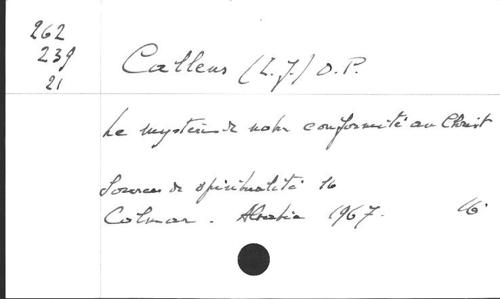 262
239
21
Callens (L.J.) O.P.
Le mystère de notre conformité au Christ
Sources de spiritualité 16
Colmar. Alsatia 1967. 16°